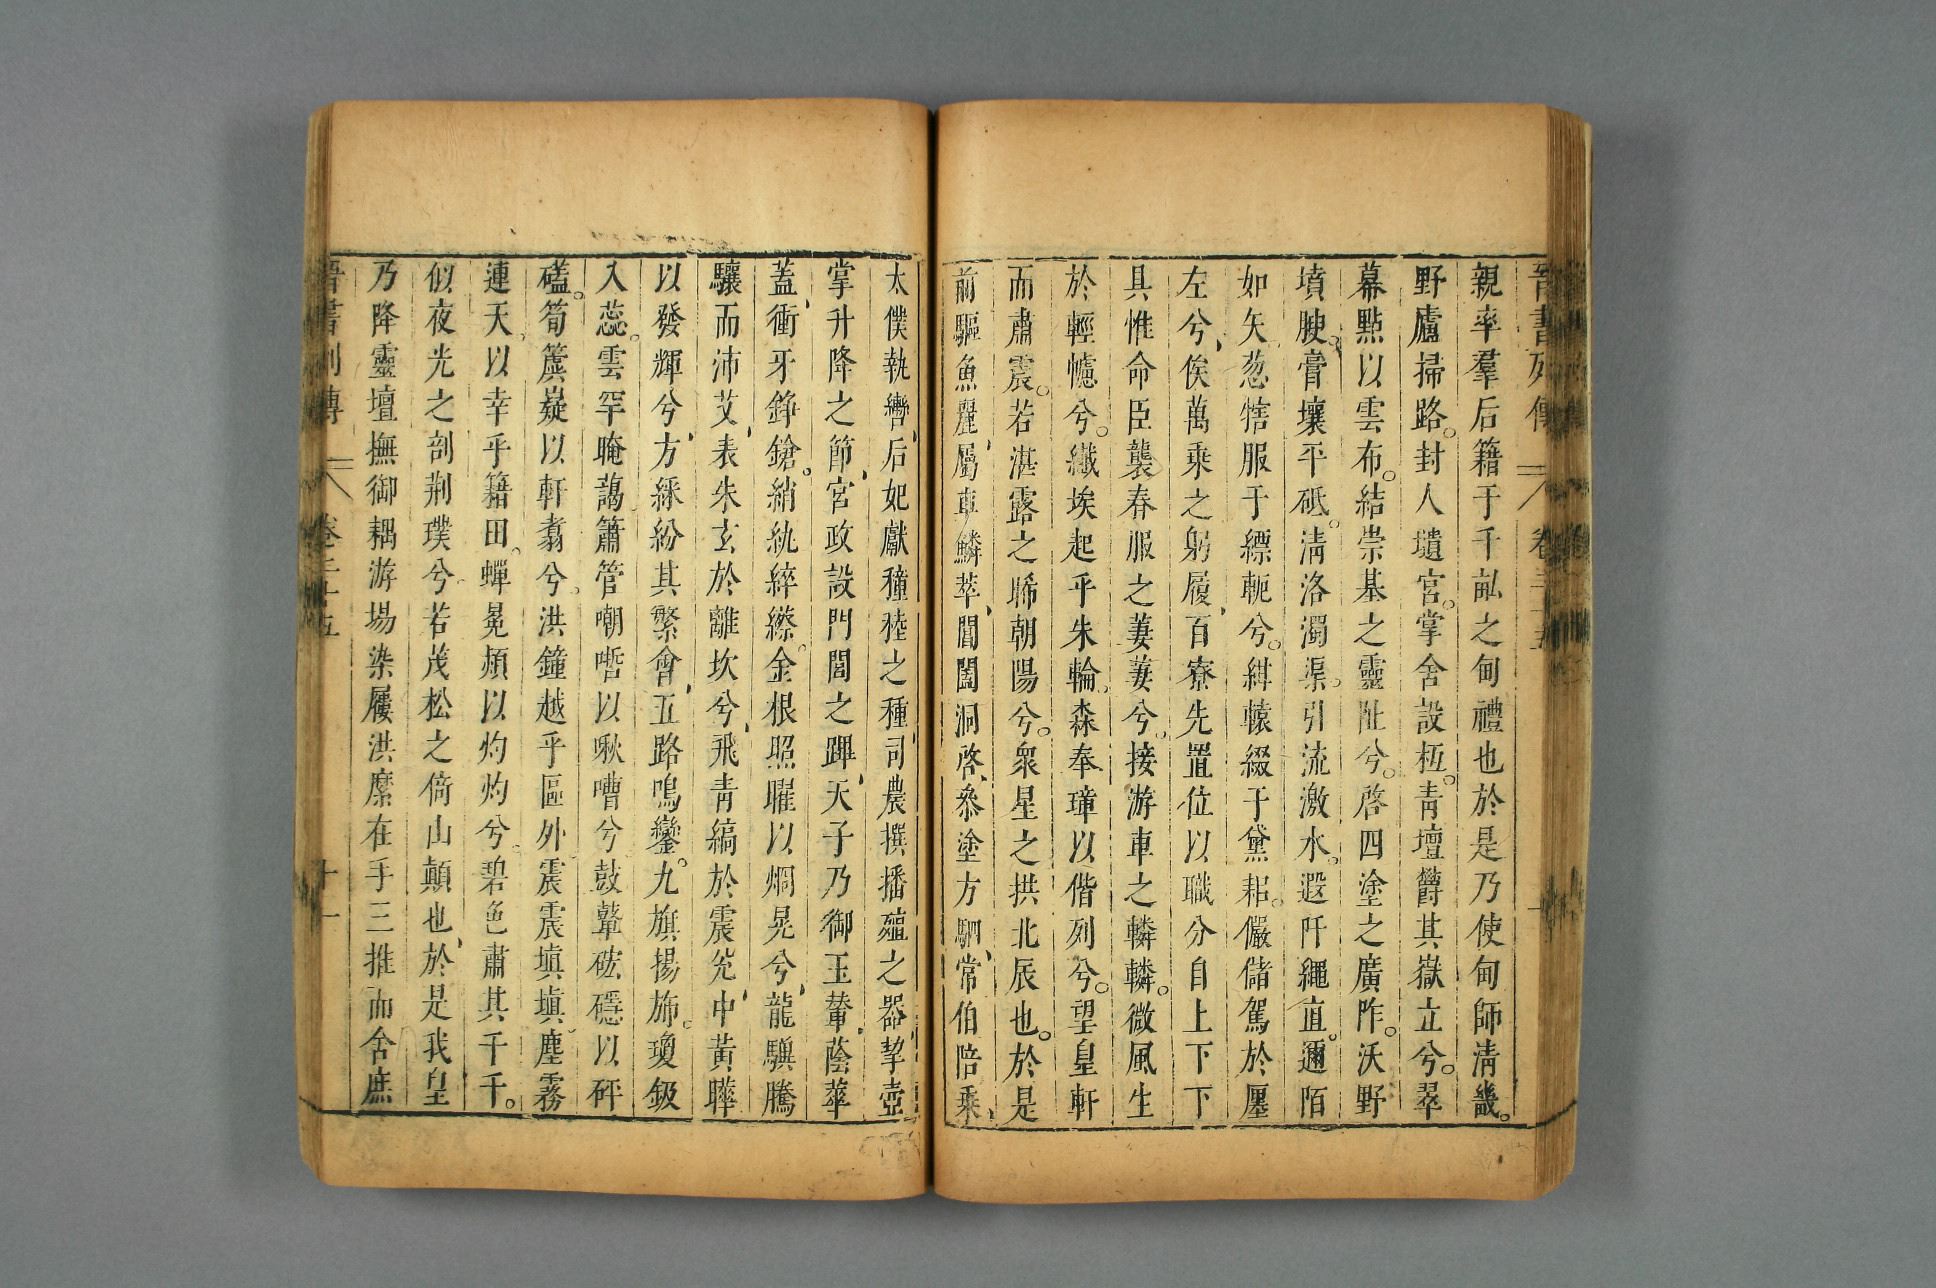 晉書列傳 卷二十五
親率羣后籍于千畝之甸禮也於是乃使甸師清畿。
野廬掃路。封人壝宮。掌舍設枑。青壇欝其嶽立兮。翠
幕黕以雲布。結崇基之靈阯兮。啓四塗之廣阼。沃野
墳腴。膏壤平砥。清洛濁渠。引流激水。遐阡繩直。邇陌
如矢。葱犗服于縹軛兮。紺轅綴于黛耜。儼儲駕於廛
左兮、俟萬乘之躬履、百寮先置位以職分自上下下
具惟命臣襲春服之萋萋兮。接游車之轔轔。微風生
於輕幰兮。纖埃起乎朱輪。森奉璋以偕列兮。望皇軒
而肅震。若湛露之晞朝陽兮。衆星之拱北辰也。於是
前驅魚麗、屬車鱗萃、閶闔洞啓、叅塗方駟、常伯陪乘、
太僕執轡、后妃獻穜稑之種、司農撰播殖之器挈壺
掌升降之節、宮政設門閭之蹕、天子乃御玉輦、蔭華
蓋、衝牙錚鎗。綃紈綷縩。金根照耀以烱晃兮、龍驥騰
驤而沛艾、表朱玄於離坎兮、飛青縞於震兊、中黃曄
以發輝兮、方綵紛其繁會、五路鳴鑾。九旗揚斾。瓊鈒
入蕊。雲罕晻藹簫管嘲哳以啾嘈兮、鼓鼙硡隱以砰
磕。筍簴嶷以軒翥兮。洪鐘越乎區外震震塡塡塵霧
連天、以幸乎籍田。蟬冕熲以灼灼兮。碧色肅其千千。
似夜光之剖荆璞兮。若茂松之倚山顛也、於是我皇
乃降靈壇撫御耦游場染屨洪縻在手三推而舍庶
晉書列傳 卷二十五 十一